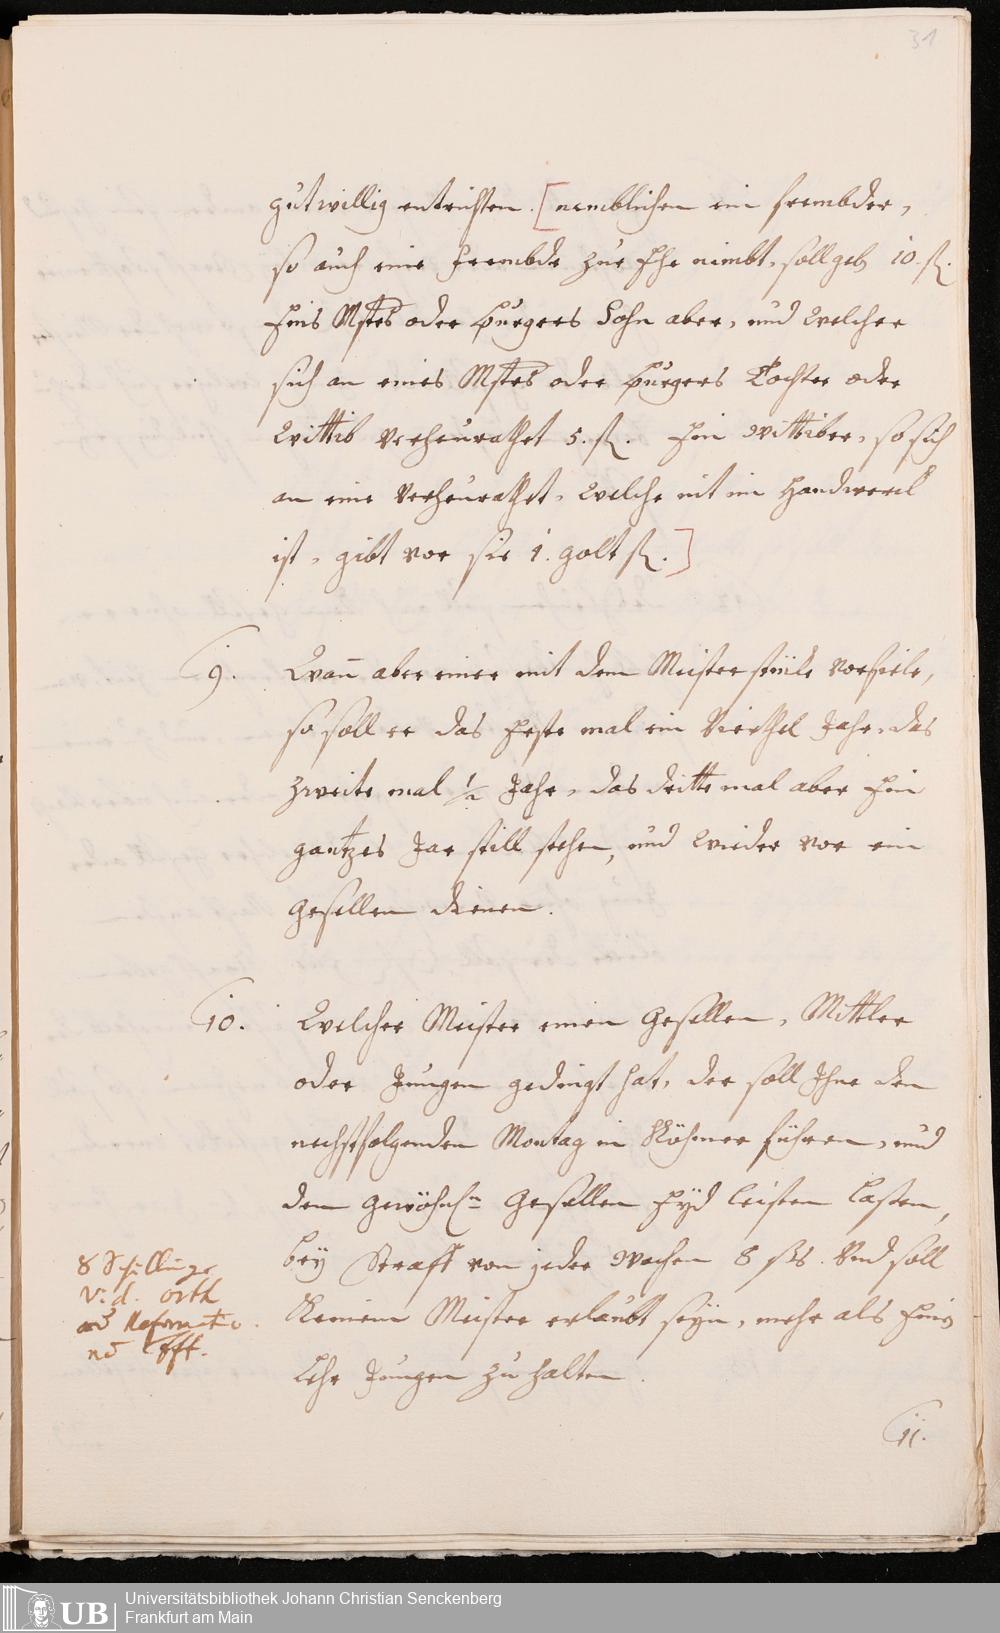 31
gutwillig entrichten. [nemblichen ein frembder,
so auch eine Frembde zur Ehe nimbt, soll geben 10. fl.
Eins Mstrs oder burgers Sohn aber, und Welcher
sich an eines Mstrs oder burgers Tochter oder
Wittib Verheurathet 5. fl. Ein Wittiber, so sich
an eine Verheurathet, Welche nit im Handwerck
ist, gibt vor sie 1. golt fl.]
9. Wann aber einer mit dem Meisterstück Vorfiele,
so soll er das Erste mal ein Vierthel Jahr, das
zweite mal 1/2 Jahr, das dritte mal aber Ein
gantzes Jar still stehen, und Wieder vor ein
gesellen dienen.
10. Welcher Meister einen gesellen, Mittler
oder Jungen gedingt hat, der soll Ihne den
nechstfolgenden Montag in Röhmer führen, und
den gewöhnln gesellen Eyd leisten lassen,
bey Straff von jeder Wochen 8 ßs. Und soll
Keinem Meister erlaubt seyn, mehr als Einen
Lehr Jungen zu halten.
8 Schillinge
v. d.
11.
Universitätsbibliothek Johann Christian Senckenberg
Frankfurt am Main
UB